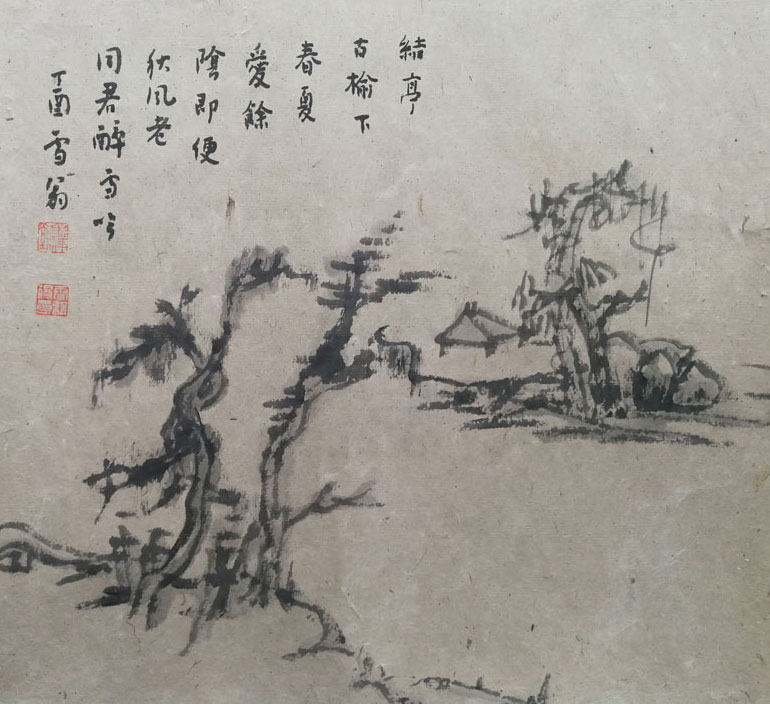 結亭
古榆下
春夏
愛餘
陰即便
秋風老
同君醉雪吟
丁酉雪翁